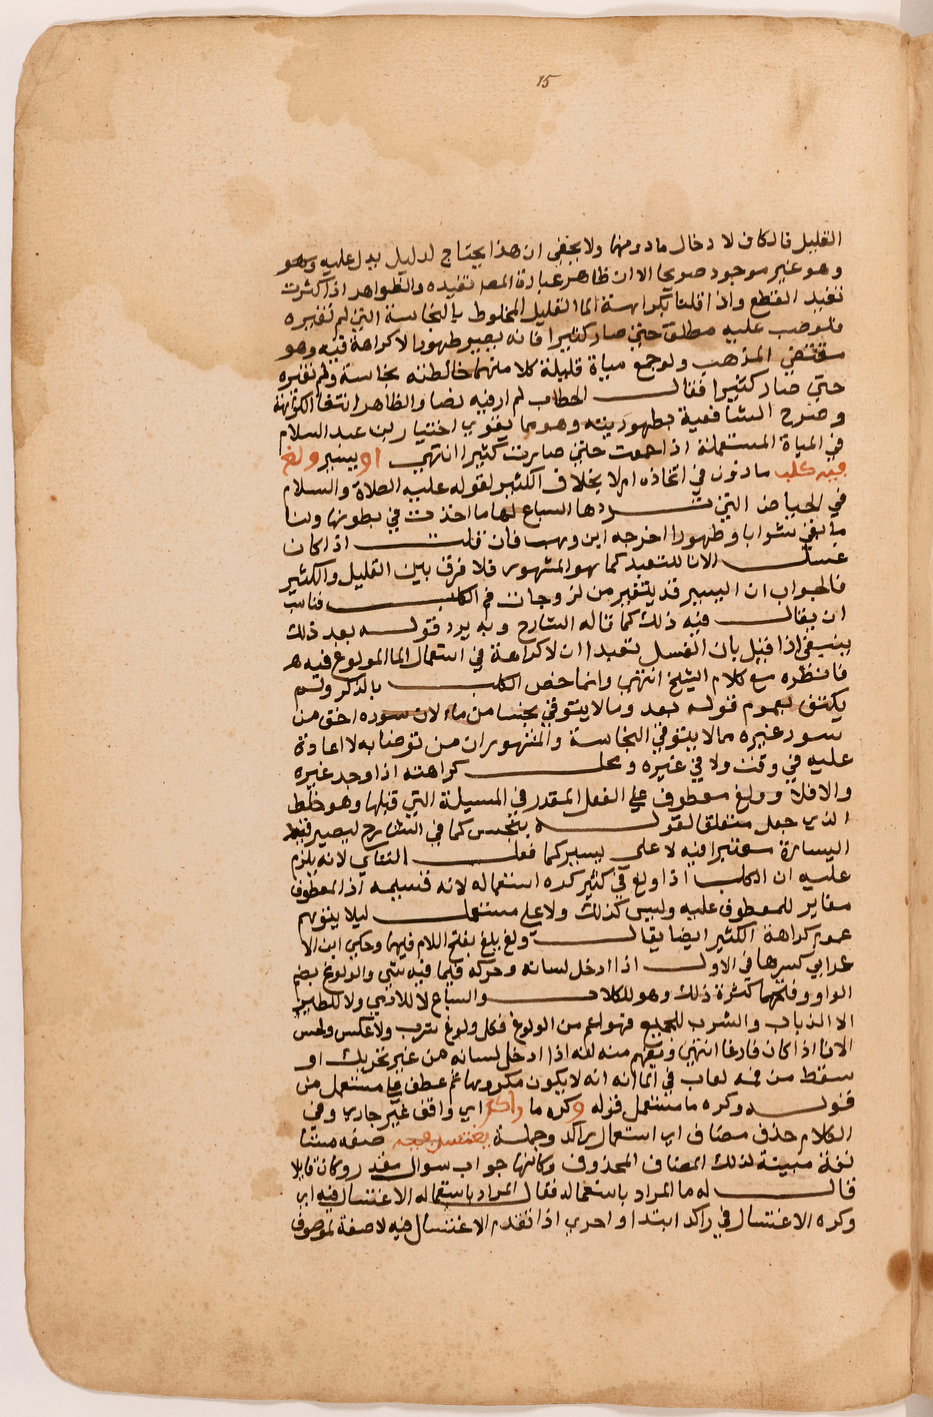 15
القليل فالكاف لادخال مادونها ولا يخفى ان هذا يحتاج لدليل يدل عليه وهو
وهو غير موجود صريحا الا ان ظاهر عبارة المص تفيده والظواهر اذا كثرت
تفيد القطع واذا قلنا بكراهة الما القليل المخلوط بالنجاسة التي لم تغيره
فلو صب عليه مطلق حتى صار كثيرا فانه يصير طهورا لا كراهة فيه وهو
مقتضى المذهب ولو جمع مياة قليلة كلا منهما خالطته نجاسة ولم تغيره
حتى صار كثيرا فقال الحطاب لم ار فيه نصا والظاهر انتفا الكراهة
وصرح الشافعية بطهوريته وهو مما يقوي اختيار بن عبد السلام
في المياة المستعملة اذا جمعت حتى صارت كثيرا انتهى او يسير ولغ
فيه كلب ماذون في اتخاذه ام لا بخلاف الكثير لقوله عليه الصلاة والسلام
في الحياض التي تردها السباع لها ما اخذت في بطونها ولنا
ما بقى شرابا وطهورا اخرجه ابن وهب فان قلت اذا كان
غسل الانا للتعبد كما هو المشهور فلا فرق بين القليل والكثير
فالجواب ان اليسير قد يتغير من لزوجات فم الكلب فناسب
ان يقال فيه ذلك كما قاله الشارح وبه يرد قوله بعد ذلك
ينبغي اذا قيل بان الغسل تعبدا ان لا كراهة في استعمال الما المولوغ فيه هـ
فانظره مع كلام الشيخ انتهى وانما خص الكلب بالذكر ولم
يكتف بعموم قوله بعد وما لا يتوقى نجسا من ماء لان سوره اخق من
سور غيره مما لا يتوقى النجاسة والمشهور ان من توضا به لا اعادة
عليه في وقت ولا في غيره ومحل كراهته اذا وجد غيره
والا فلا وولغ معطوف على الفعل المقدر في المسيلة التي قبلها وهو خلط
الذي جعل متعلقا لقوله بنجس كما في الشارح ليصير قيد
اليسارة معتبرا فيه لا على يسير كما فعل التتاي لانه يلزم
عليه ان الكلب اذا ولغ في كثير كره استعماله لانه قسيمه اذ المعطوف
مغاير للمعطوف عليه وليس كذلك ولا على مستعمل ليلا يتوهم
عموم كراهة الكثير ايضا يقال ولغ يلغ بفتح اللام فيهما وحكى ابن الا
عرابي كسرها في الاول اذا ادخل لسانه وحركه فيما فيه شى والولوغ بضم
الواو وفتحها كثرة ذلك وهو للكلاب والسباع لا للادمي ولا للطير
الا الذباب والشرب للجميع فهو اعم من الولوغ فكل ولوغ شرب ولا عكس ولحس
الانا اذا كان فارغا انتهى ويفهم منه انه اذا ادخل لسانه من غير تحريك او
سقط من فمه لعاب في الما انه لا يكون مكروها ثم عطف على مستعمل من
قوله وكره ما مستعمل قوله وكره ما راكد اي واقف غير جاري وفي
الكلام حذف مضاف اي استعمال راكد وجملة يغتسل فيه صفه مستا
نفة مبينة لذلك المضاف المحذوف وكانها جواب سوال مقدر وكان قايلا
قال له ما المراد باستعماله فقال المراد باستعماله الاغتسال فيه اي
وكره الاغتسال في راكد ابتدا واحرى اذا تقدم الاغتسال فيه لا صفة لموصوف